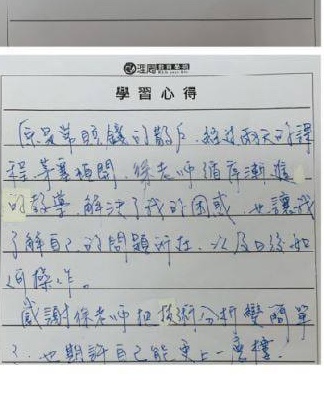 理周教育學苑
學習心得
原是常賠錢的散戶，經過兩天的課
程，茅塞頓開，徐老師循序漸進
的教學，解決了我的困惑，也讓我
了解自己的問題所在，以及日後如
何操作。
感謝徐老師把技術分析變簡單
了，也期許自己能更上一層樓．